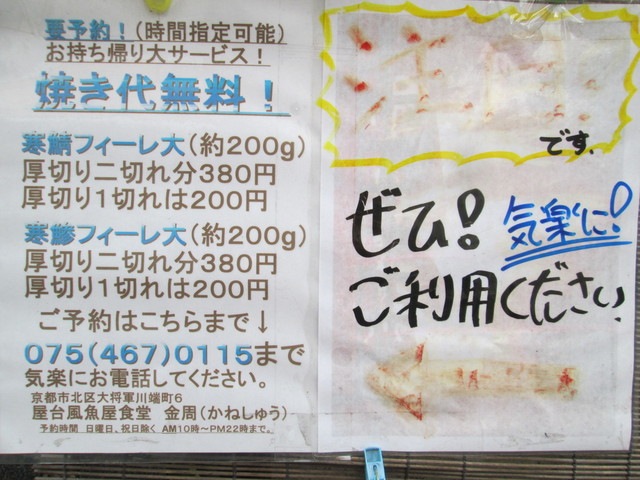 要予約！（時間指定可能）
お持ち帰り大サービス！
焼き代無料！
寒鯖フィーレ大（約200g）
厚切り二切れ分380円
厚切り1切れは200円
寒鰺フィーレ大（約200g）
厚切り二切れ分380円
厚切り1切れは200円
ご予約はこちらまで↓
075(467)0115まで
気楽にお電話してください。
京都市北区大将軍川端町6
屋台風魚屋食堂 金周（かねしゅう）
予約時間 日曜日、祝日除く AM10時～PM22時まで。
注目
です.
ぜひ! 気楽に!
ご利用ください.